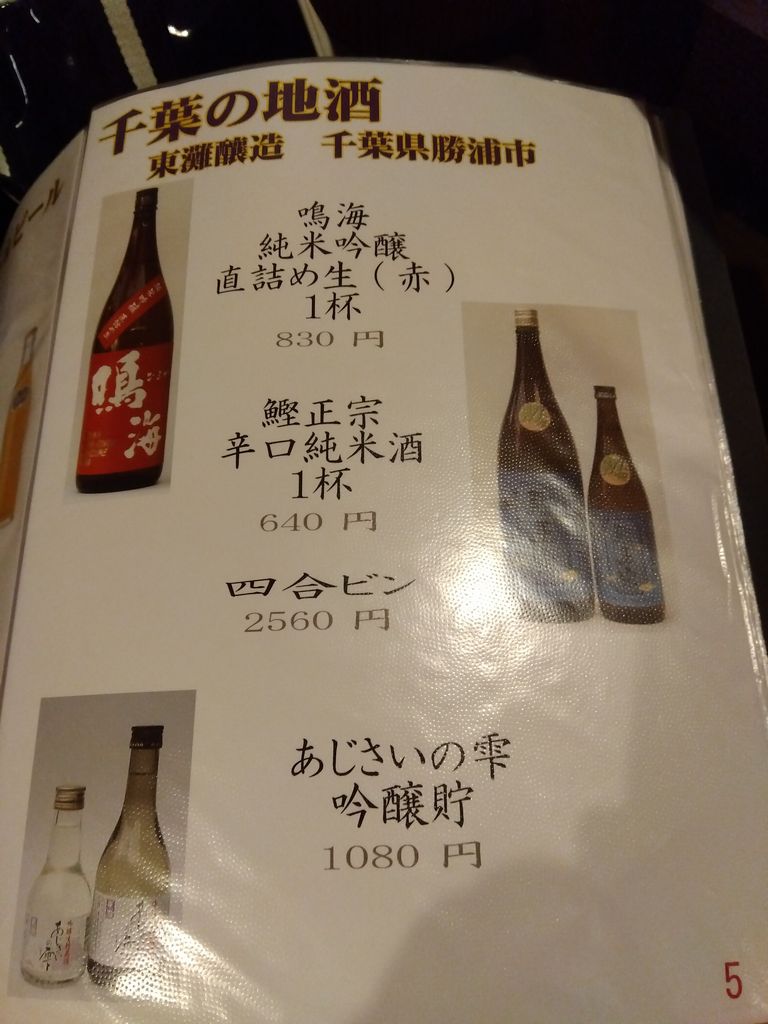 千葉の地酒
東灘醸造　千葉県勝浦市
鳴海
純米吟醸
直詰め生（赤）
1杯
830 円
鰹正宗
辛口純米酒
1杯
640 円
四合ビン
2560 円
あじさいの雫
吟醸貯
1080 円
5
ビール
鳴海
あじさい
の雫